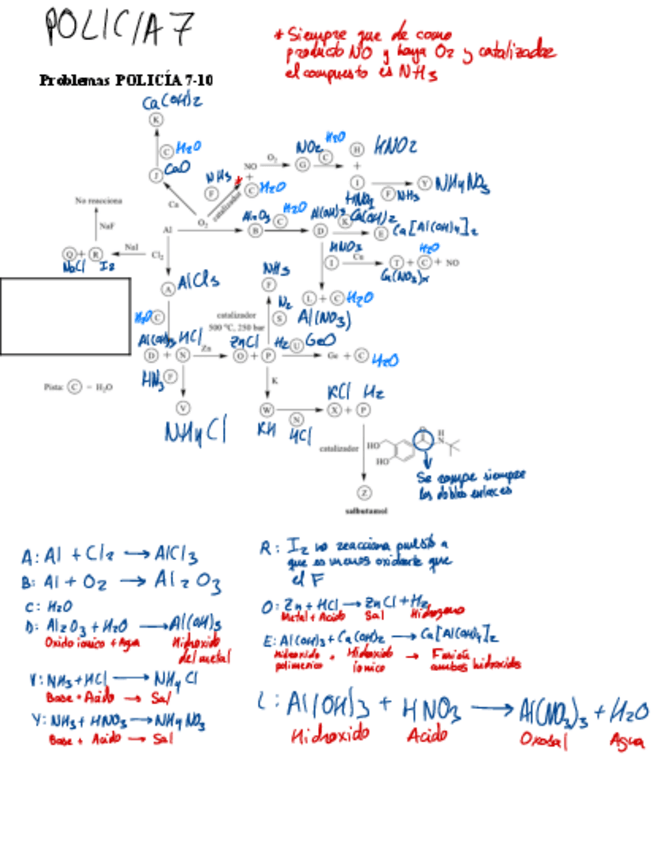 POLICIA 7
* Siempre que de como
producto NO y haya O2 y catalizador
el compuesto es NH3
Problemas POLICÍA 7-10
Ca(OH)2
K
C H2O
J CaO
Ca
NH3
F
O2
catalizador
NO
+
C H2O
O2
NO2
G
H2O
C
H HNO2
+
I
HNO3
F NH3
Y NH4NO3
No reacciona
NaF
Q + R
NaCl I2
NaI
Cl2
Al
Al2O3
B
H2O
C
Al(OH)3
D
K Ca(OH)2
E Ca[Al(OH)4]2
HNO3
I
Cu
T + C + NO
H2O
Cu(NO3)x
A AlCl3
NH3
F
N2
S
L + C H2O
Al(NO3)
H2O C
catalizador
500 °C, 250 bar
Al(OH)3 HCl
D + N
Zn
ZnCl H2
O + P
U GeO
Ge + C H2O
Pista: C = H2O
HN3 F
V
NH4Cl
K
W
KH
N
HCl
KCl H2
X + P
catalizador
HO
HO
O
H
N
Se rompe siempre
los dobles enlaces
Z
salbutamol
A: Al + Cl2 → AlCl3
B: Al + O2 → Al2O3
C: H2O
D: Al2O3 + H2O → Al(OH)3
Oxido ionico + Agua Hidroxido
del metal
V: NH3 + HCl → NH4Cl
Base + Acido → Sal
Y: NH3 + HNO3 → NH4NO3
Base + Acido → Sal
R: I2 no reacciona puesto a
que es menos oxidante que
el F
O: Zn + HCl → ZnCl + H2
Metal + Acido Sal Hidrogeno
E: Al(OH)3 + Ca(OH)2 → Ca[Al(OH)4]2
Hidroxido + Hidroxido → Fusión
polimerico ionico ambos hidroxidos
L: Al(OH)3 + HNO3 → Al(NO3)3 + H2O
Hidroxido Acido Oxosal Agua